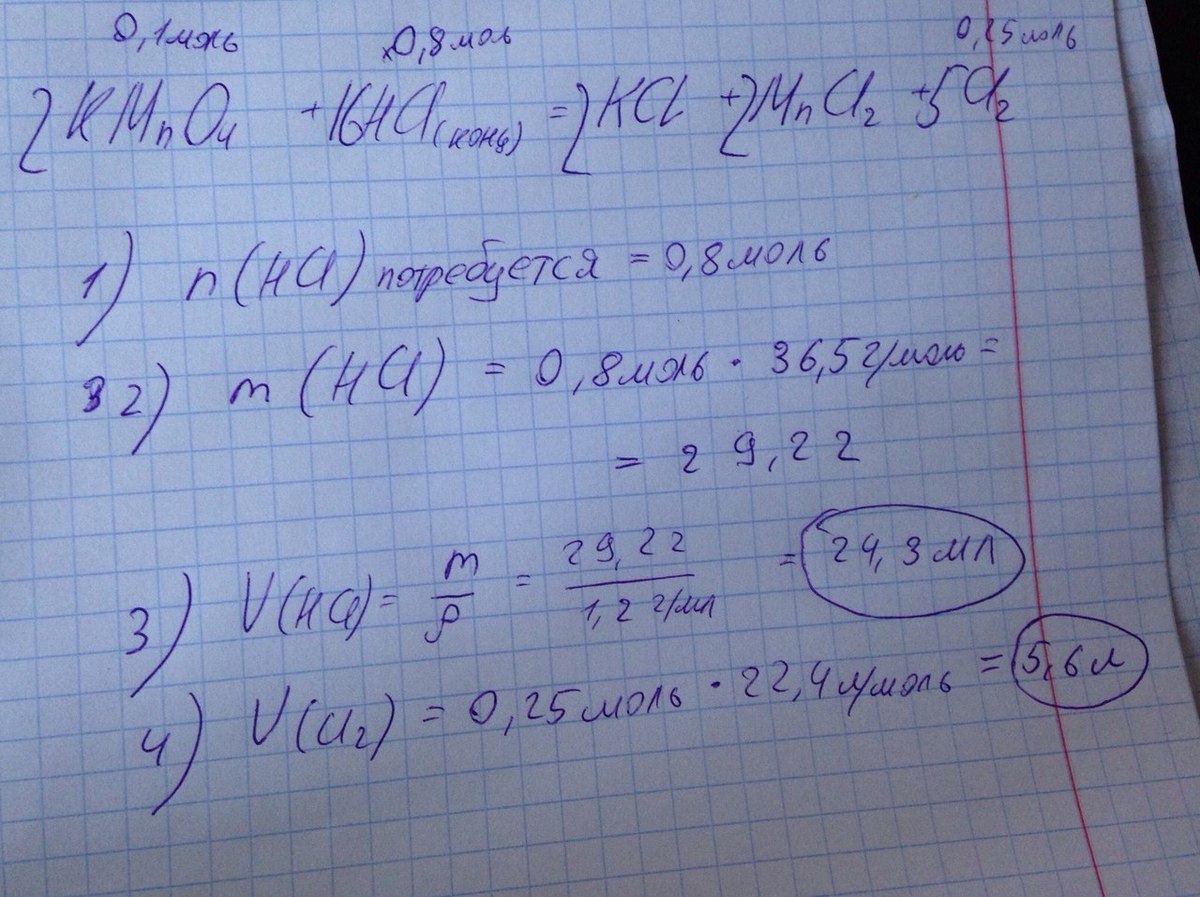 0,1моль 0,8моль 0,25моль
2KMnO4 +16HCl(конц) =2KCl +2MnCl2 +5Cl2
1) n(HCl) потребуется = 0,8моль
2) m(HCl) = 0,8моль · 36,5г/моль =
= 29,2г
3) V(HCl)= m/ρ = 29,2г/1,2г/мл = 24,3мл
4) V(Cl2) = 0,25моль · 22,4л/моль = 5,6л